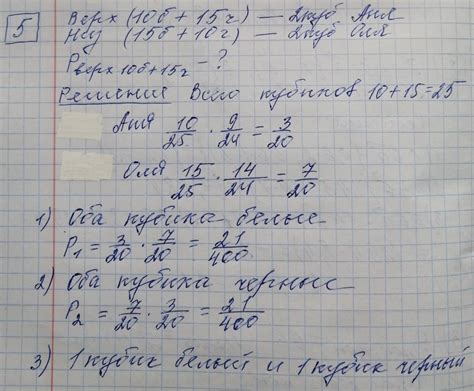 5
Верх (10б + 15ч) — 2куб Аня
Низ (15б + 10ч) — 2куб Оля
P верх 10б+15ч — ?
Решение Всего кубиков 10+15=25
Аня 10/25 · 9/24 = 3/20
Оля 15/25 · 14/24 = 7/20
1) Оба кубика белые
P₁ = 3/20 · 7/20 = 21/400
2) Оба кубика черные
P₂ = 7/20 · 3/20 = 21/400
3) 1 кубик белый и 1 кубик черный